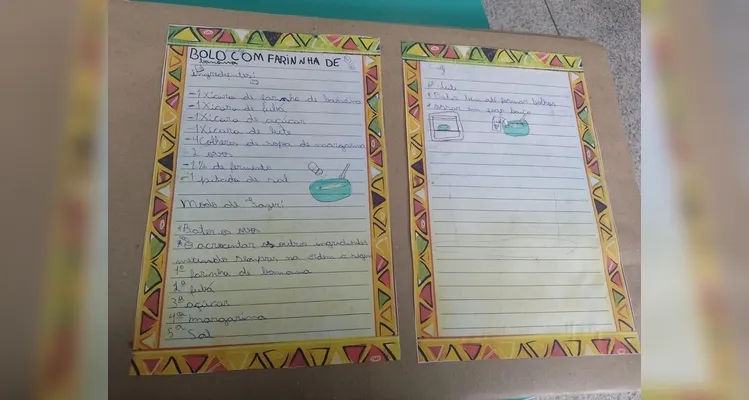 BOLO COM FARINNHA DE
banana
Ingredientes!
-1 Xícara de farinha de banana
-1 Xícara de fubá
-1 Xícara de açúcar
-1 Xícara de leite
-4 Colheres de sopa de margarina
-2 ovos
de fermento
-1 pitada de sal
Modo de fazer!
*Bater os ovos
acrecentar os outros ingredientes
mexendo sempre na ordem a seguir
1º farinha de banana
2º fubá
3º açúcar
4º margarina
5º Sal
leite
*Bater bem até formar bolhas